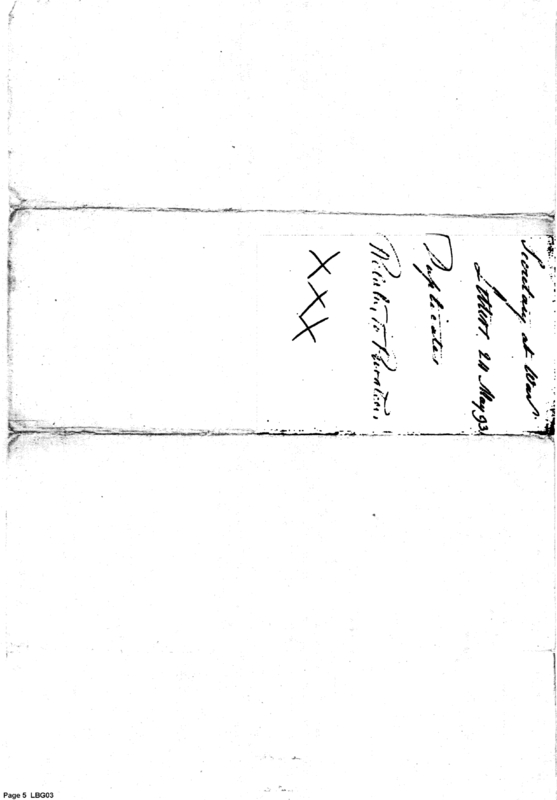 Secretary at War
Letters. 24 May 93
Duplicates
Relative to
X X X
Page 5 LBG03